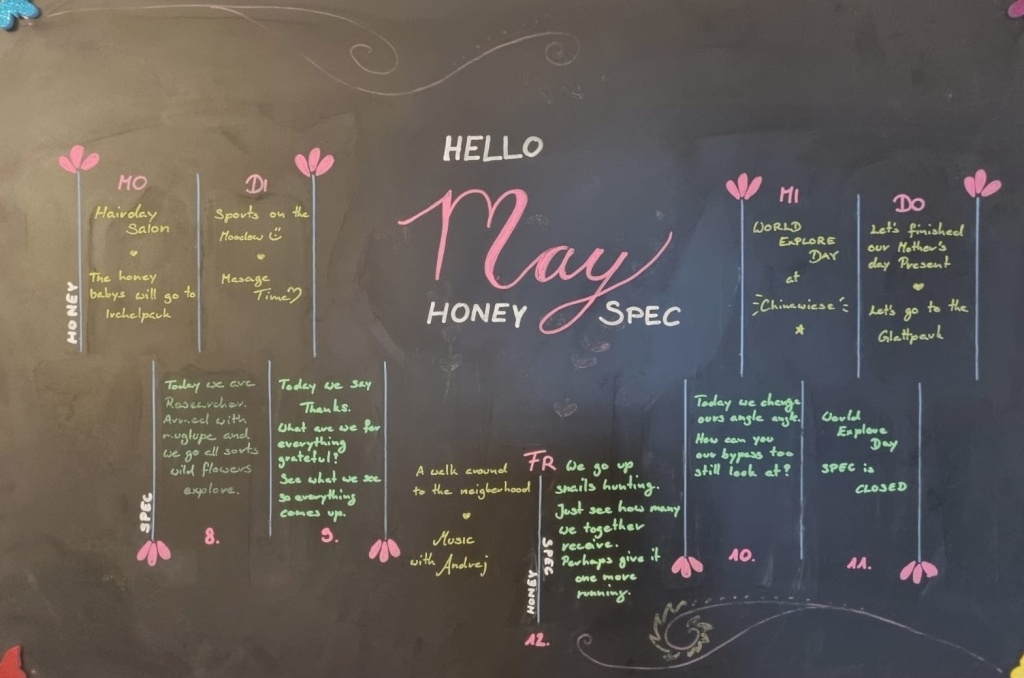 HELLO
May
HONEY SPEC
HONEY
MO
Hairday
Salon
The honey
babys will go to
Irchelpark
DI
Sports on the
Meadow
Mesage
Time
MI
WORLD
EXPLORE
DAY
at
"Chinawiese"
DO
Let's finished
our Mother's
day Present
Let's go to the
Glattpark
SPEC
Today we are
Researcher.
Armed with
we go all sorts
wild flowers
explore.
8.
Today we say
Thanks.
What are we for
everything
grateful?
See what we see
so everything
comes up.
9.
FR
A walk around
to the neigberhood
Music
with Andrej
HONEY
SPEC
We go up
snails hunting.
Just see how many
we together
receive.
Perhaps give it
one more
running.
12.
Today we change
ours angle angle.
How can you
our bypass too
still look at?
10.
World
Explore
Day
SPEC is
CLOSED
11.